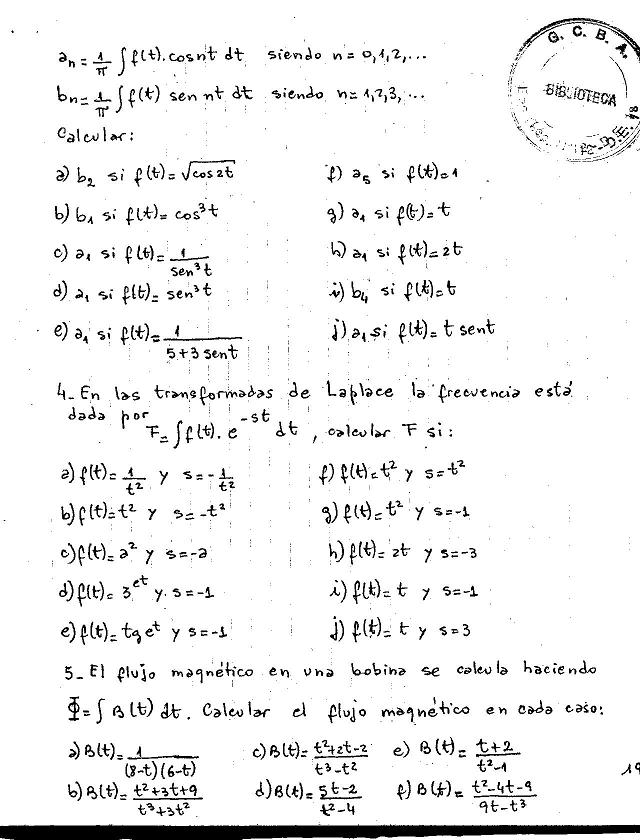 an = 1/π ∫ f(t). cos nt dt siendo n = 0,1,2,...
bn = 1/π ∫ f(t) sen nt dt siendo n = 1,2,3,...
Calcular:
a) b₂ si f(t) = √cos 2t
b) b₁ si f(t) = cos³t
c) a₁ si f(t) = 1/sen³t
d) a₁ si f(t) = sen³t
e) a₁ si f(t) = 1/5+3 sent
f) a₅ si f(t) = 1
g) a₁ si f(t) = t
h) a₁ si f(t) = 2t
i) b₄ si f(t) = t
j) a₁ si f(t) = t sent
4_ En las transformadas de Laplace la frecuencia está
dada por F = ∫ f(t). e^-st dt, calcular F si:
a) f(t) = 1/t² y s = -1/t²
b) f(t) = t² y s = -t²
c) f(t) = a² y s = -a
d) f(t) = 3^et y. s = -1
e) f(t) = tg e^t y s = -1
f) f(t) = t² y s = t²
g) f(t) = t² y s = -1
h) f(t) = 2t y s = -3
i) f(t) = t y s = -1
j) f(t) = t y s = 3
5_ El flujo magnético en una bobina se calcula haciendo
Φ = ∫ B(t) dt. Calcular el flujo magnético en cada caso:
a) B(t) = 1/(8-t)(6-t)
b) B(t) = t²+3t+9/t³+3t²
c) B(t) = t²+2t-2/t³-t²
d) B(t) = 5t-2/t²-4
e) B(t) = t+2/t²-1
f) B(t) = t²-4t-9/9t-t³
19
G. C. B. A.
BIBLIOTECA